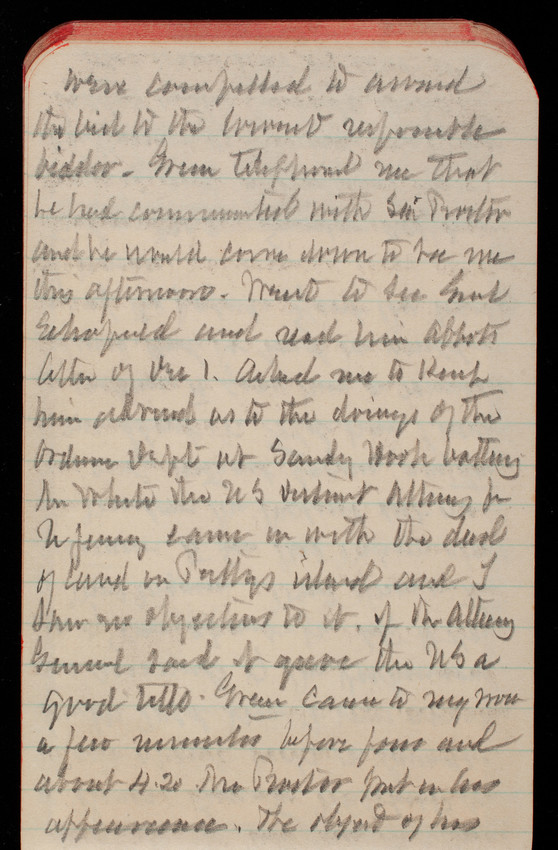 were compelled to award
the bid to the lowest responsible
bidder. Green telephoned me that
he had communicated with Sen Proctor
and he would come down to see me
this afternoon. Went to see Genl
Schofield and read him Abbots
letter of Dec 1. Asked me to keep
him advised as to the doings of the
Ordnance Dept at Sandy Hook battery
Mr White the US District Attorney for
N Jersey came in with the deed
of land on Pettys island and I
saw no objections to it. if the Attorney
General said it gave the US a
good title. Green came to my room
a few minutes before four and
about 4.20 Mr Proctor put in his
appearance. The object of his